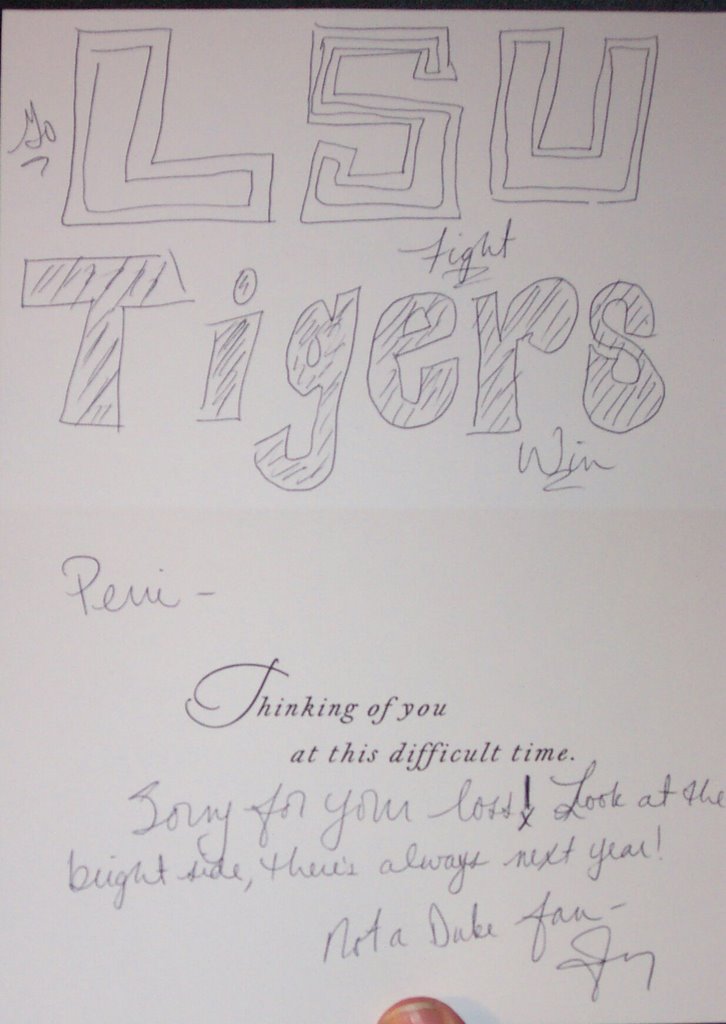 Go
LSU
Fight
Tigers
Win
Perri -
Thinking of you
at this difficult time.
Sorry for your loss! Look at the
bright side, there's always next year!
Not a Duke fan -